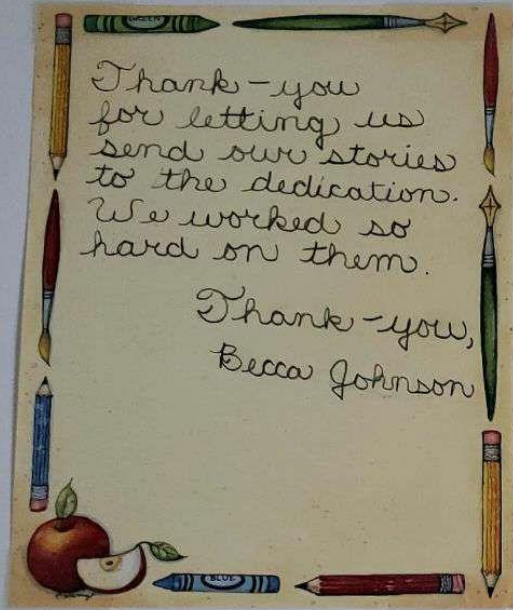 GREEN
Thank-you
for letting us
send our stories
to the dedication.
We worked so
hard on them.
Thank-you,
Becca Johnson
BLUE